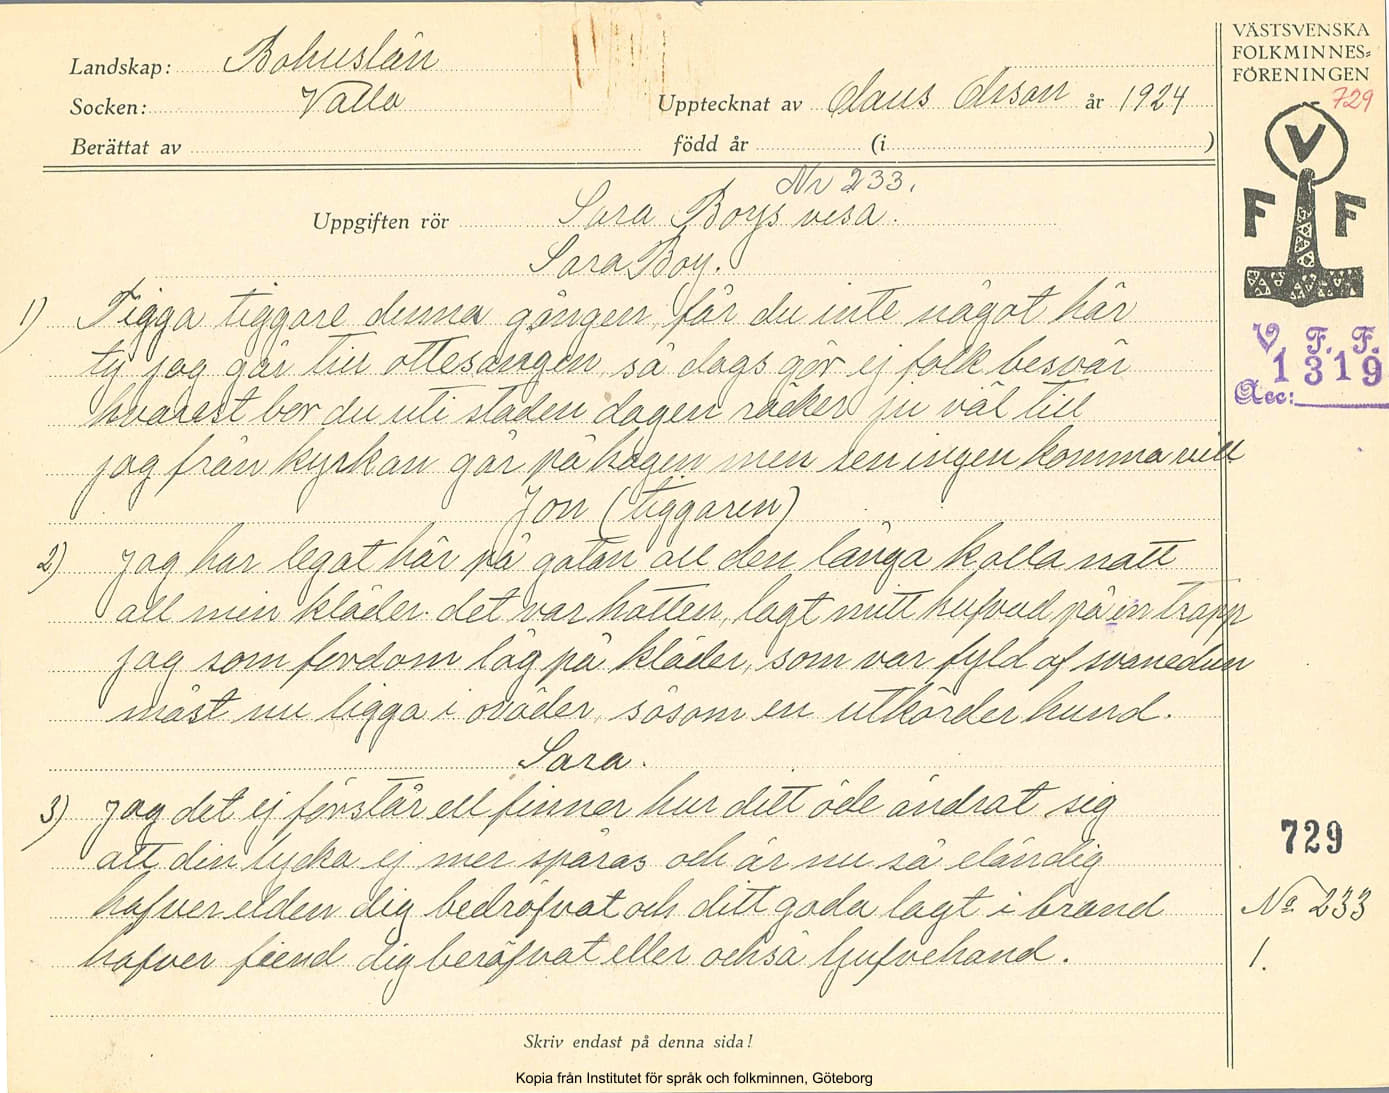 Landskap: Bohuslän
Socken: Valla
Upptecknat av Claus Olsson år 1924
Berättat av född år (i )
VÄSTSVENSKA
FOLKMINNES=
FÖRENINGEN
729
V
F F
V. F. F.
1319
Acc:
Nr 233.
Uppgiften rör Sara Boys visa.
Sara Boy.
1) Tigga tiggare denna gången, får du inte något här
ty jag går till ottesången, så dags gör ej folk besvär
hvarest bor du uti staden dagen räcker ju väl till
jag från kyrkan går på hagen men sen ingen komma vill
Jon (tiggaren)
2) Jag har legat här på gatan all den långa kalla natt
all min kläder det var hatten, lagt mitt hufvud på en trapp
jag som fordom låg på kläder, som var fyld af svanedun
måst nu ligga i oväder, såsom en utkörder hund.
Sara.
3) Jag det ej förstår ell finner hur ditt öde ändrat sig
att din lycka ej mer spåras och är nu så eländig
hafver elden dig bedröfvat och ditt goda lagt i brand
hafver fiend dig beröfvat eller också tjufvehand.
729
No 233
1.
Skriv endast på denna sida!
Kopia från Institutet för språk och folkminnen, Göteborg